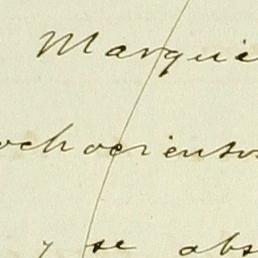 Marquie
ochocientos
y se abs